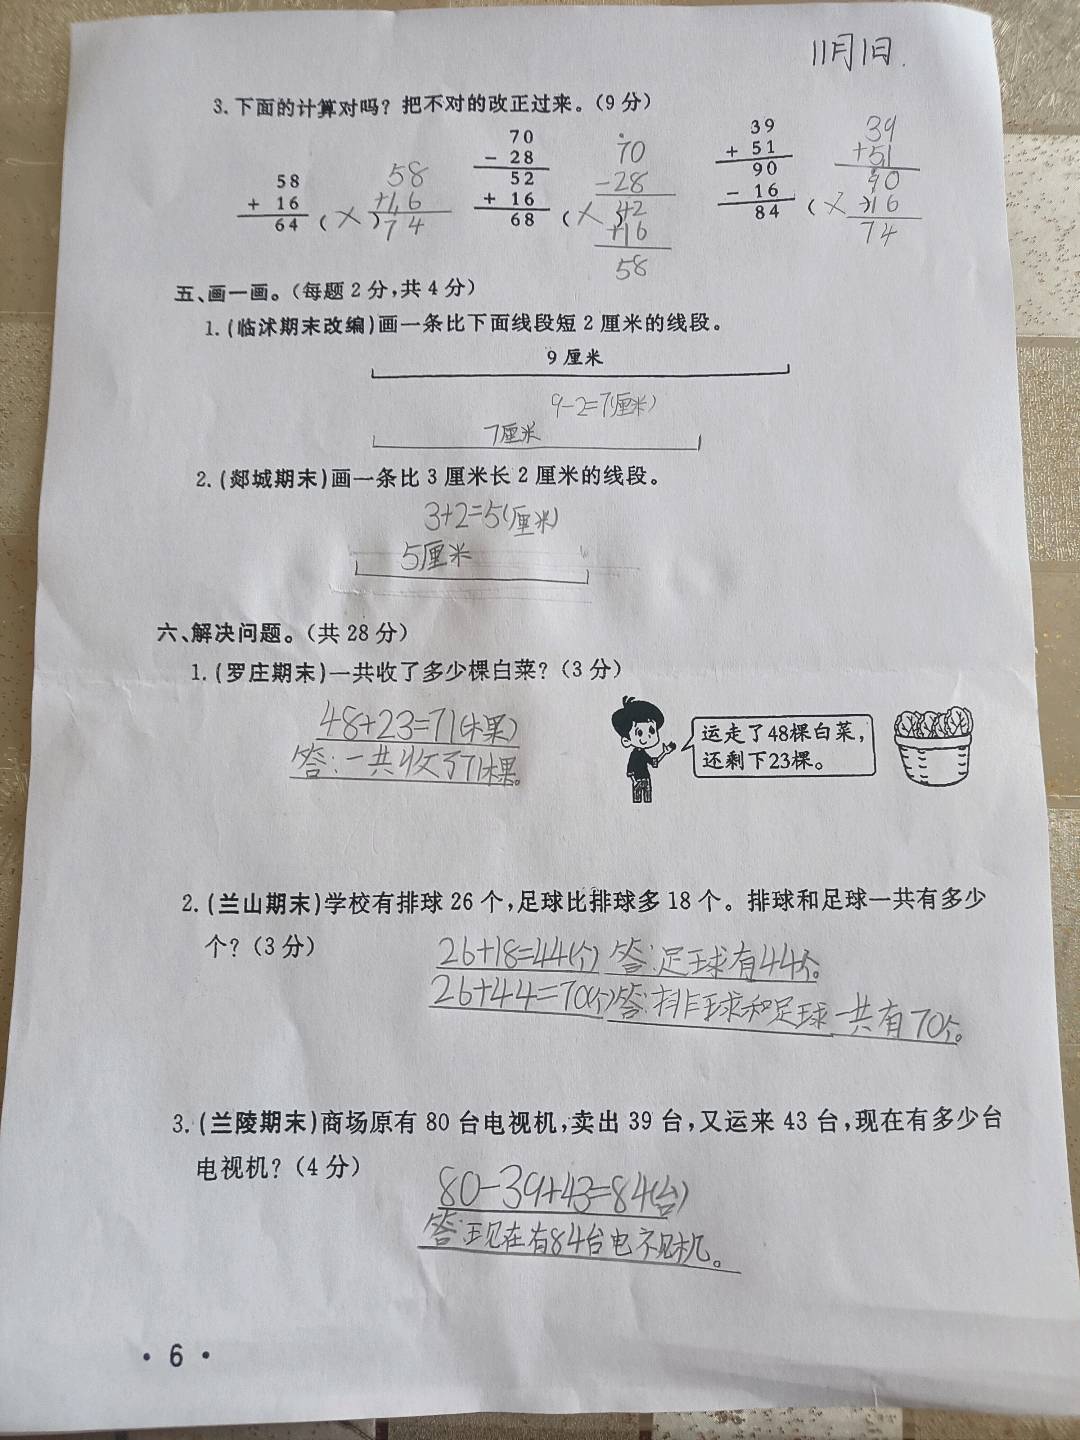 11月1日.
3.下面的计算对吗？把不对的改正过来。（9分）
58
+ 16
64 (×)
58
+16
74
70
- 28
52
+ 16
68 (×
70
-28
42
+16
58
39
+ 51
90
- 16
84 (×)
39
+51
90
-16
74
五、画一画。（每题2分，共4分）
1.(临沭期末改编)画一条比下面线段短2厘米的线段。
9厘米
9-2=7(厘米)
7厘米
2.(郯城期末)画一条比3厘米长2厘米的线段。
3+2=5(厘米)
5厘米
六、解决问题。（共28分）
1.(罗庄期末)一共收了多少棵白菜？（3分）
48+23=71(棵)
答:一共收了71棵。
运走了48棵白菜，
还剩下23棵。
2.(兰山期末)学校有排球26个，足球比排球多18个。排球和足球一共有多少
个？（3分）
26+18=44(个) 答:足球有44个。
26+44=70(个)答:排球和足球一共有70个。
3.(兰陵期末)商场原有80台电视机，卖出39台，又运来43台，现在有多少台
电视机？（4分）
80-39+43=84(台)
答:现在有84台电视机。
·6·